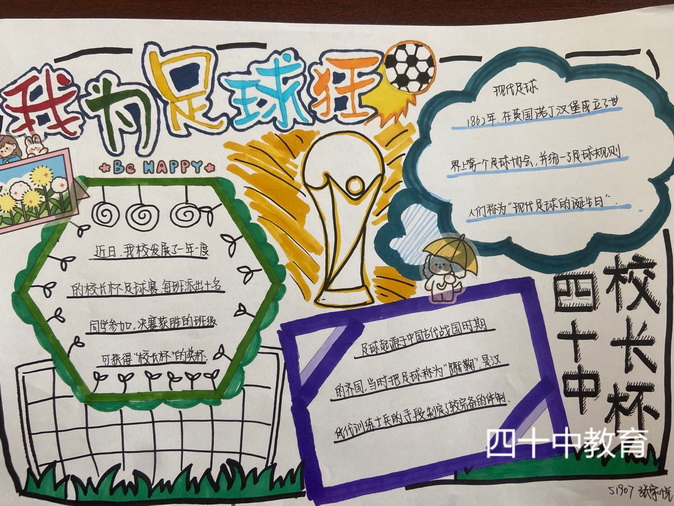 我为足球狂
Be HAPPY
现代足球
1862年,在英国诺丁汉堡成立了世
界上第一个足球协会,并统一了足球规则
人们称为“现代足球的诞生日”.
近日,我校发展了一年度
的校长杯足球赛,每班派出十名
同学参加,决赛获胜的班级
可获得“校长杯”的奖杯.
足球起源于中国古代战国时期
的齐国,当时把足球称为“蹴鞠”,是汉
代训练士兵的手段,制定了较完备的体制.
四十中
校长杯
四十中教育
S1907